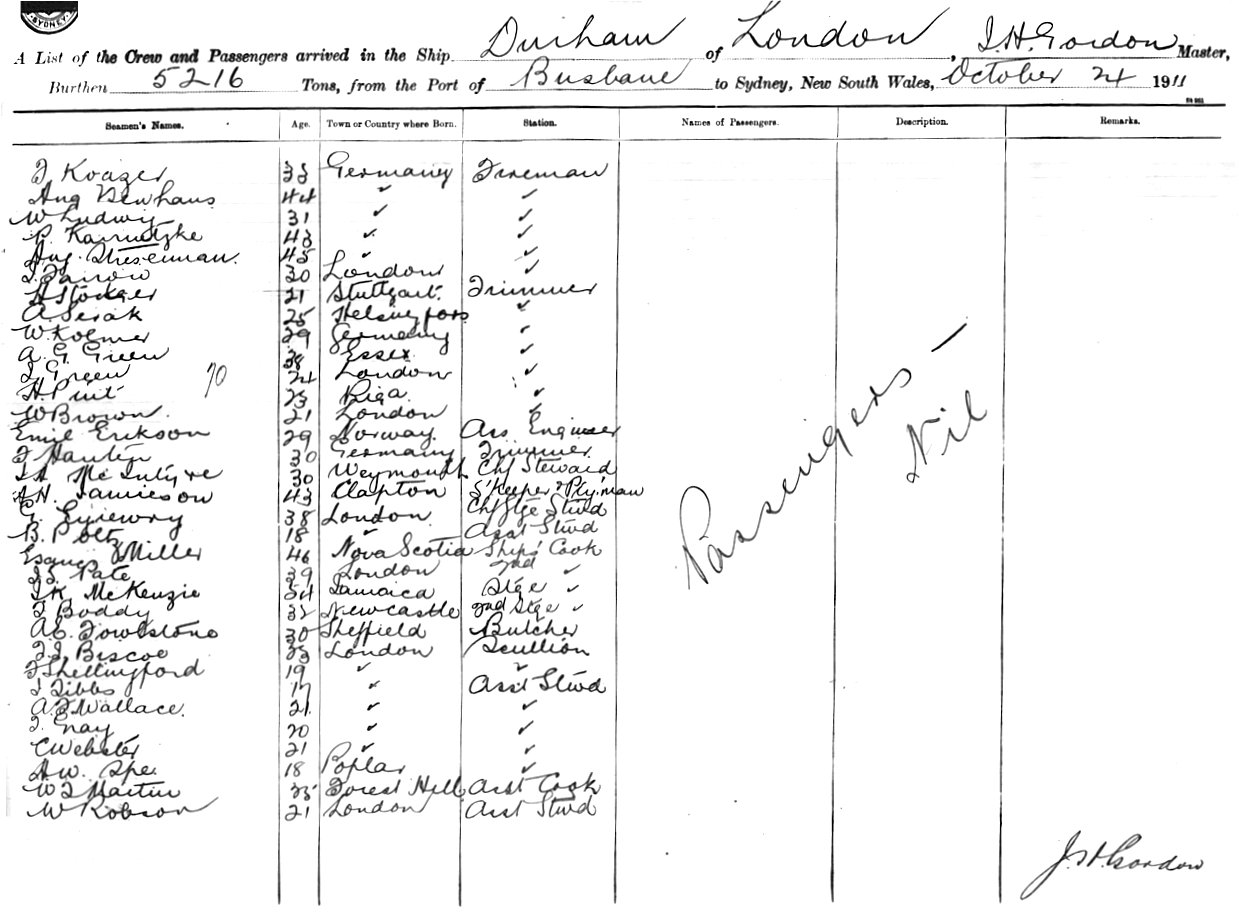 SYDNEY
A List of the Crew and Passengers arrived in the Ship Durham of London, J.H. Gordon Master,
Burthen 5216 Tons, from the Port of Brisbane to Sydney, New South Wales, October 24 1911
Seamen's Names. Age. Town or Country where Born. Station. Names of Passengers. Description. Remarks.
Germany Fireman
Aug Newhaus 44 " "
W Ludwig 31 " "
43 " "
Aug 45 " "
30 London "
21 Stuttgart. Trimmer
A. Serak 25 Helsingfors "
W Kolmer 29 Germany "
A. G. Green 38 Essex "
J Green 24 London "
70
H Puit 23 Riga "
W Brown. 21 London "
Emil Erikson 29 Norway. Ass. Engineer
30 Germany Trimmer
Mc Intyre 30 Weymouth Chf Steward
A.H. Jamieson 43 Clapton S'Keeper & Pty'man
38 London Chf Stge Stwd
B. Poltz 18 " Asst Stwd
Miller 46 Nova Scotia Ships' Cook
Pate 39 London 2nd "
McKenzie 54 Jamaica Stge "
Boddy Newcastle 2nd Stge "
A.E. Towlstone 30 Sheffield Butcher
Biscoe 33 London Scullion
Shellingford 19 " "
Tibbs 17 " Asst Stwd
Wallace. 21 " "
Gray 20 " "
C Webster 21 " "
H.W. Spe 18 Poplar "
W J Martin 35 Forest Hill Asst Cook
W Robson 21 London Asst Stwd
Passengers —
Nil
J.H. Gordon